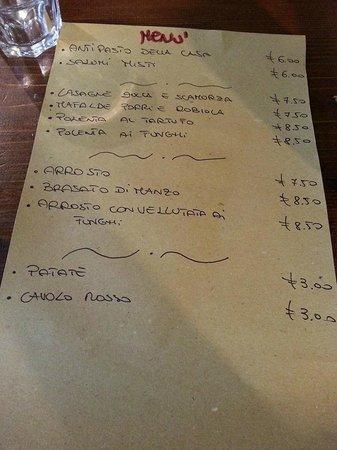 MENU'
• ANTIPASTO DELLA CASA €6.00
• SALUMI MISTI €6.00
• LASAGNE ZUCCA E SCAMORZA €7.50
• MAFALDE PORRI E ROBIOLA €7.50
• POLENTA AL TARTUFO €8.50
• POLENTA AI FUNGHI €8.50
• ARROSTO €7.50
• BRASATO DI MANZO €8.50
• ARROSTO CON VELLUTATA AI €8.50
FUNGHI
• PATATE €3.00
• CAVOLO ROSSO €3.00